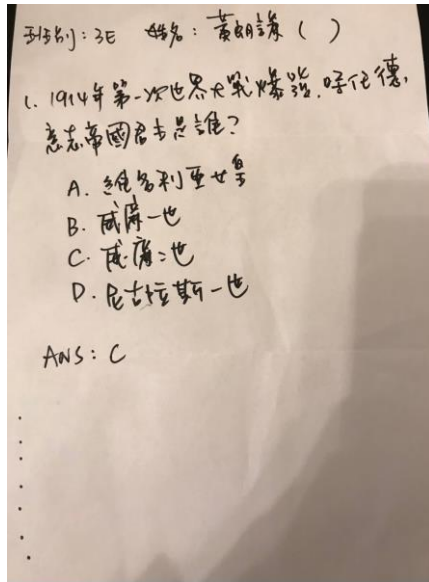 班別：3E 姓名：黃朗謙（ ）
1. 1914年第一次世界大戰爆發，時任德
意志帝國君主是誰？
A. 維多利亞女皇
B. 威廉一世
C. 威廉二世
D. 尼古拉斯一世
ANS：C